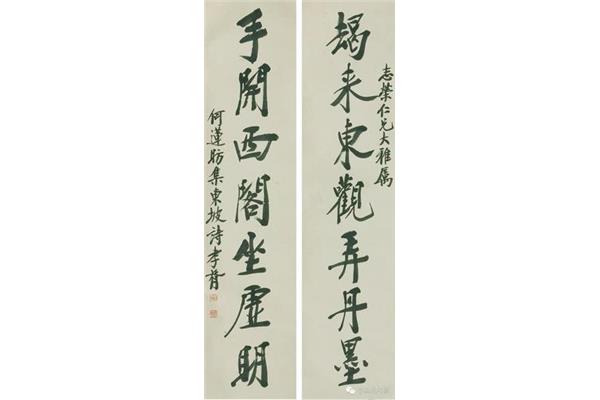 朅来東觀弄丹墨
志榮仁兄大雅属
手開西閣坐虛明
何蓮舫集東坡詩孝胥